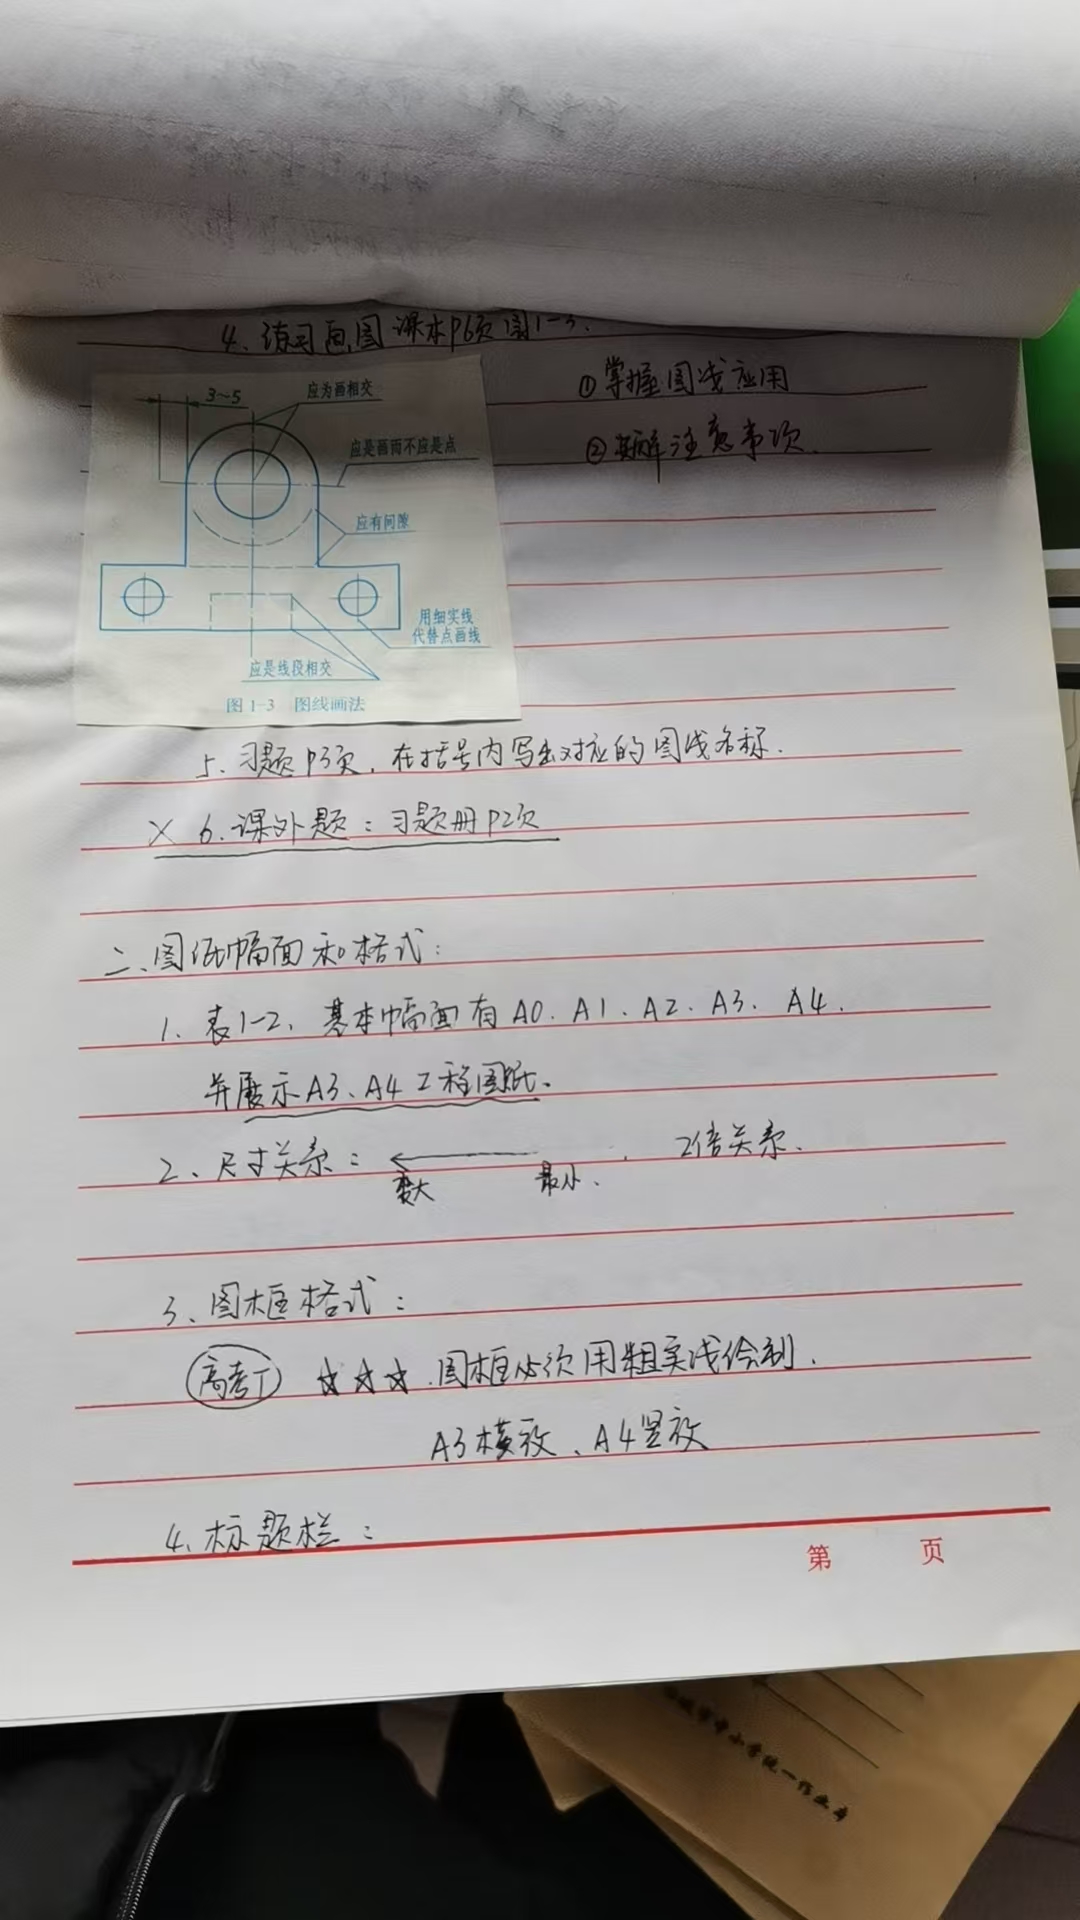 4、练习画图 课本P6页图1-3.
①掌握图线应用
②理解注意事项.
3~5
应为画相交
应是画而不应是点
应有间隙
用细实线
代替点画线
应是线段相交
图1-3 图线画法
5、习题P3页,在括号内写出对应的图线名称.
× 6.课外题:习题册P2页
二、图纸幅面和格式:
1、表1-2、基本幅面有A0、A1、A2、A3、A4.
并展示A3、A4工程图纸。
2、尺寸关系: 2倍关系.
变大 最小.
3、图框格式:
☆☆☆.图框必须用粗实线绘制.
A3横放、A4竖放
4、标题栏:
第 页